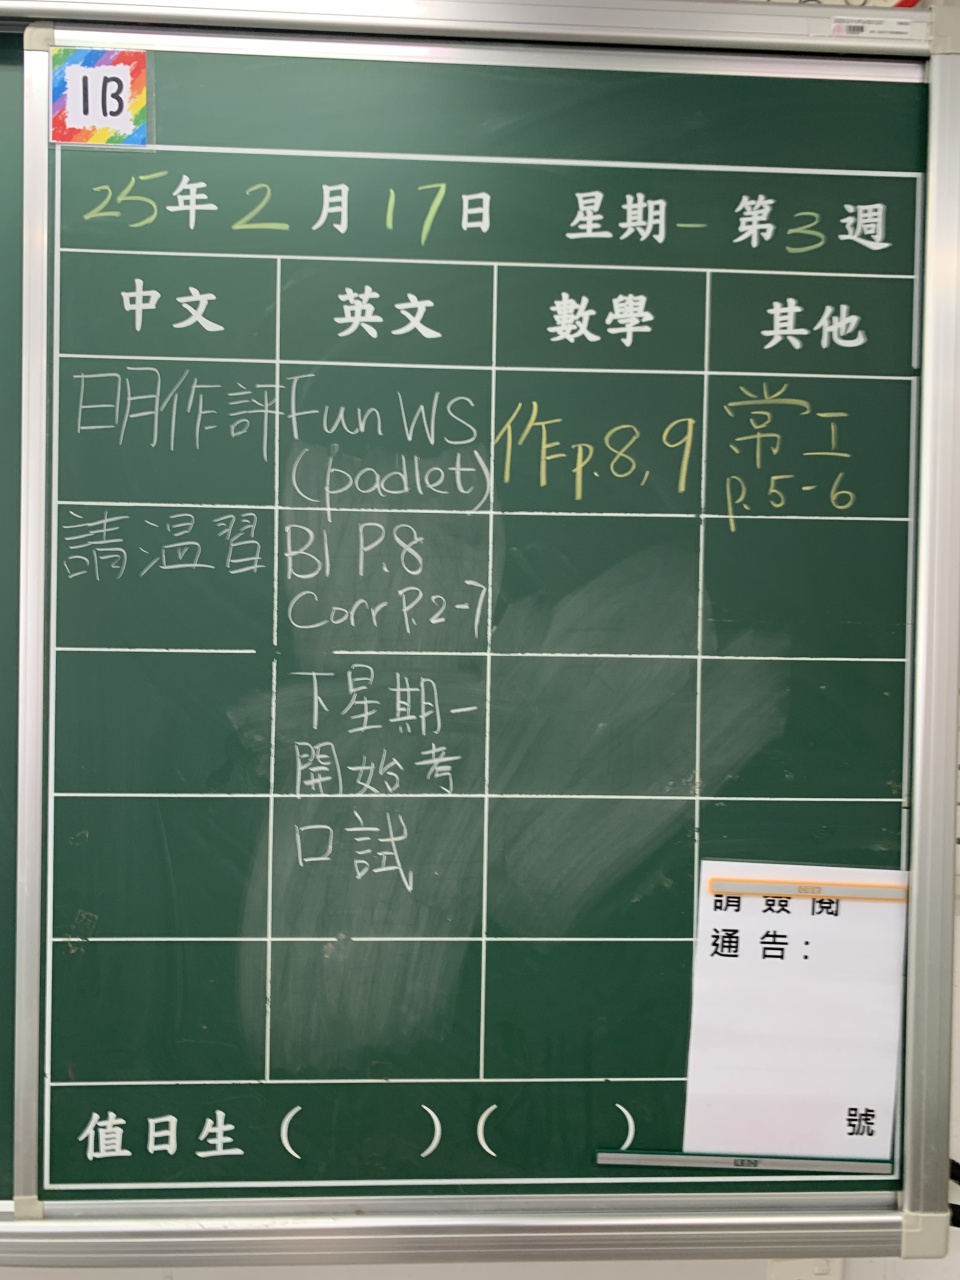 1B
25年2月17日 星期一 第3週
中文 英文 數學 其他
明作評 Fun WS 作p.8,9 常工
(padlet) p.5-6
請温習 B1 P.8
Corr P.2-7
下星期一
開始考
口試
請簽閱
通告：
號
值日生 ( ) ( )